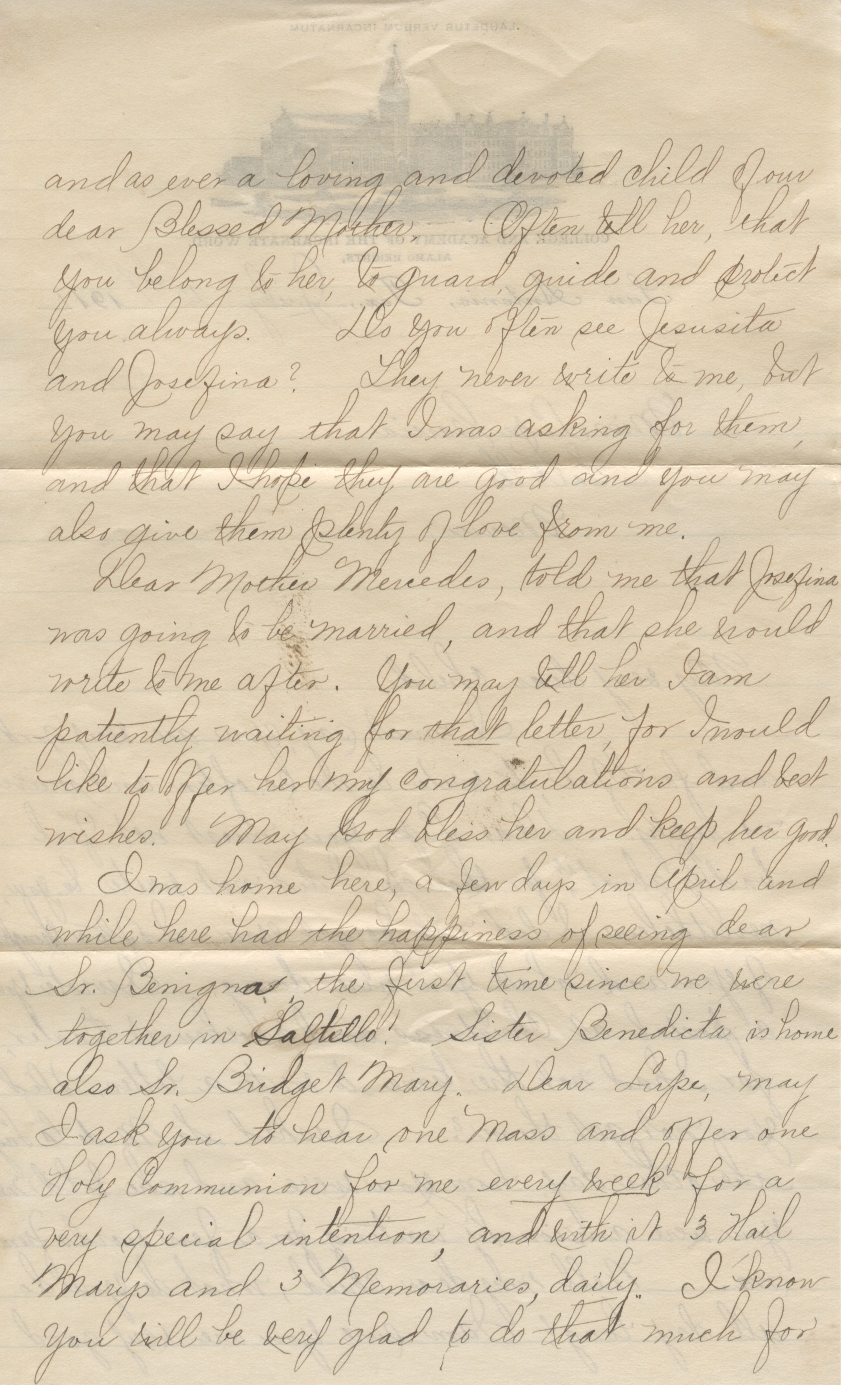 and as ever a loving and devoted child of our
dear Blessed Mother. Often tell her, that
you belong to her, to guard, guide and protect
you always. Do you often see Jesusita
and Josefina? They never write to me, but
you may say that I was asking for them,
and that I hope they are good and you may
also give them plenty of love from me.
Dear Mother Mercedes, told me that Josefina
was going to be married, and that she would
write to me after. You may tell her I am
patiently waiting for that letter, for I would
like to offer her my congratulations and best
wishes. May God bless her and keep her good.
I was home here, a few days in April and
while here had the happiness of seeing dear
Sr. Benigna, the first time since we were
together in Saltillo! Sister Benedicta is home
also Sr. Bridget Mary. Dear Lupe, may
I ask you to hear one Mass and offer one
Holy Communion for me every week for a
very special intention, and with it 3 Hail
Marys and 3 Memoraries, daily. I know
you will be very glad to do that much for